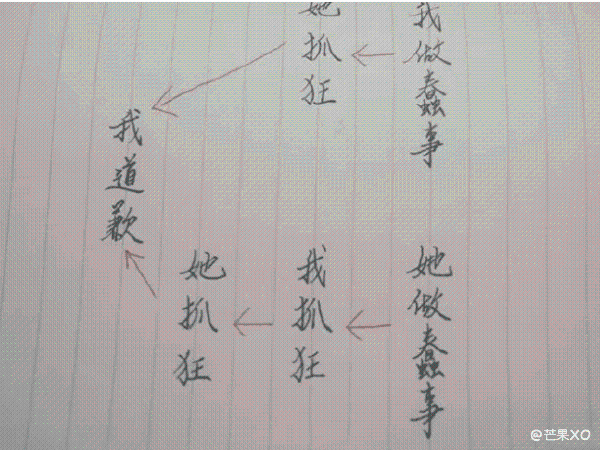 我做蠢事
她抓狂
她做蠢事
我抓狂
她抓狂
我道歉
@芒果XO